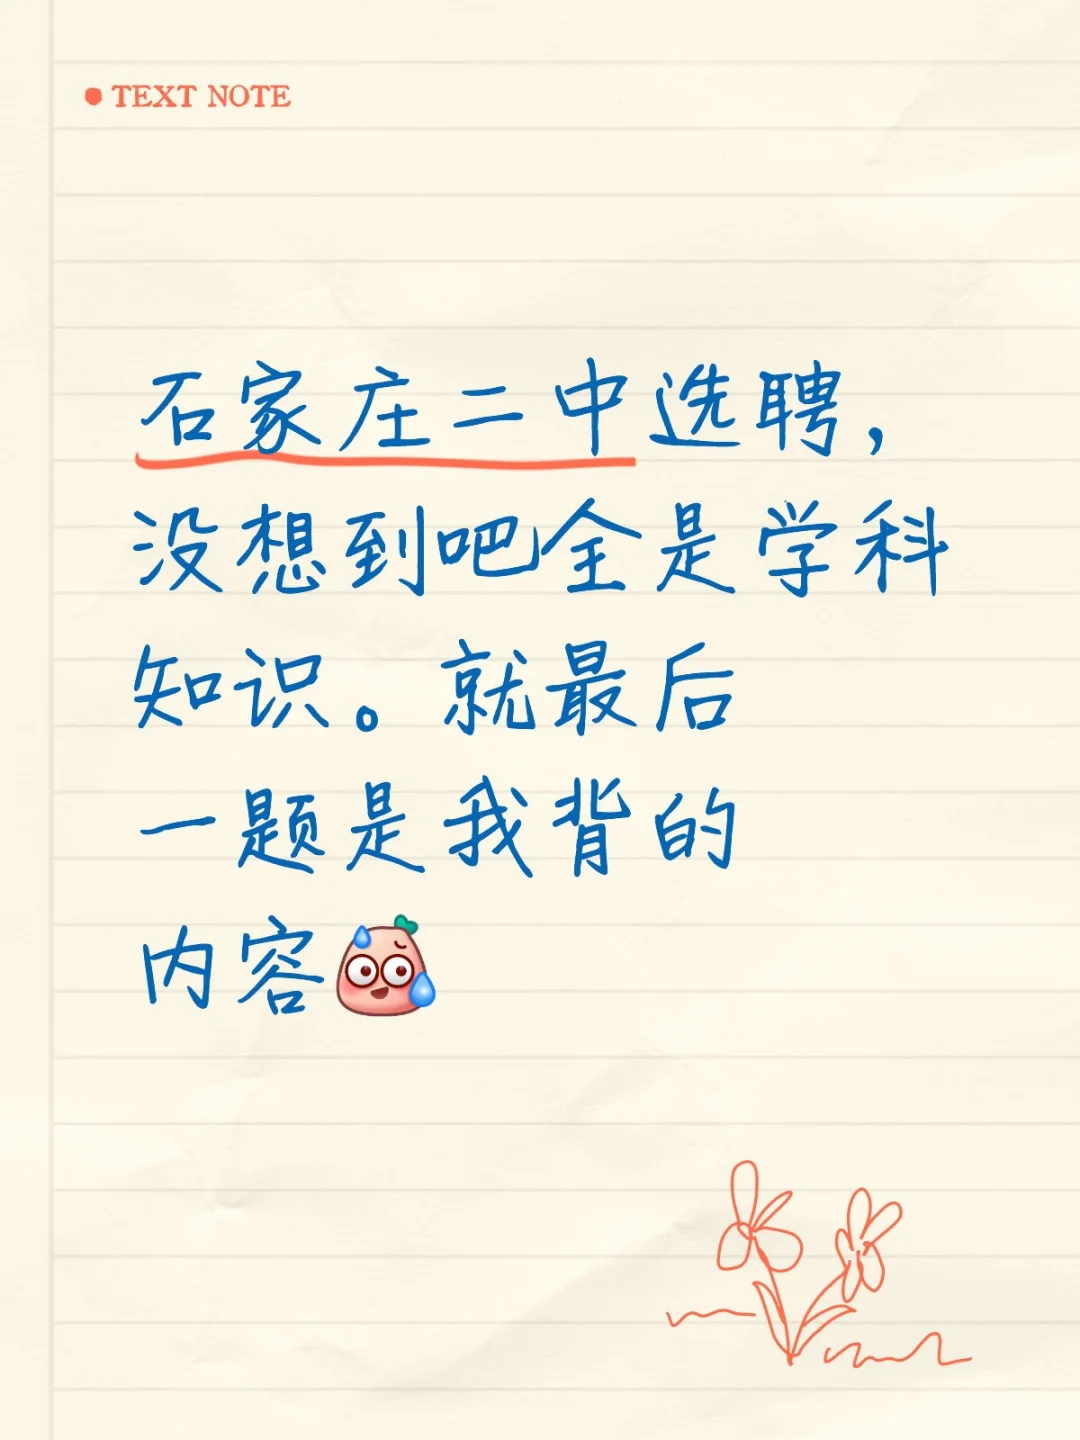 TEXT NOTE
石家庄二中选聘，
没想到吧全是学科
知识。就最后
一题是我背的
内容